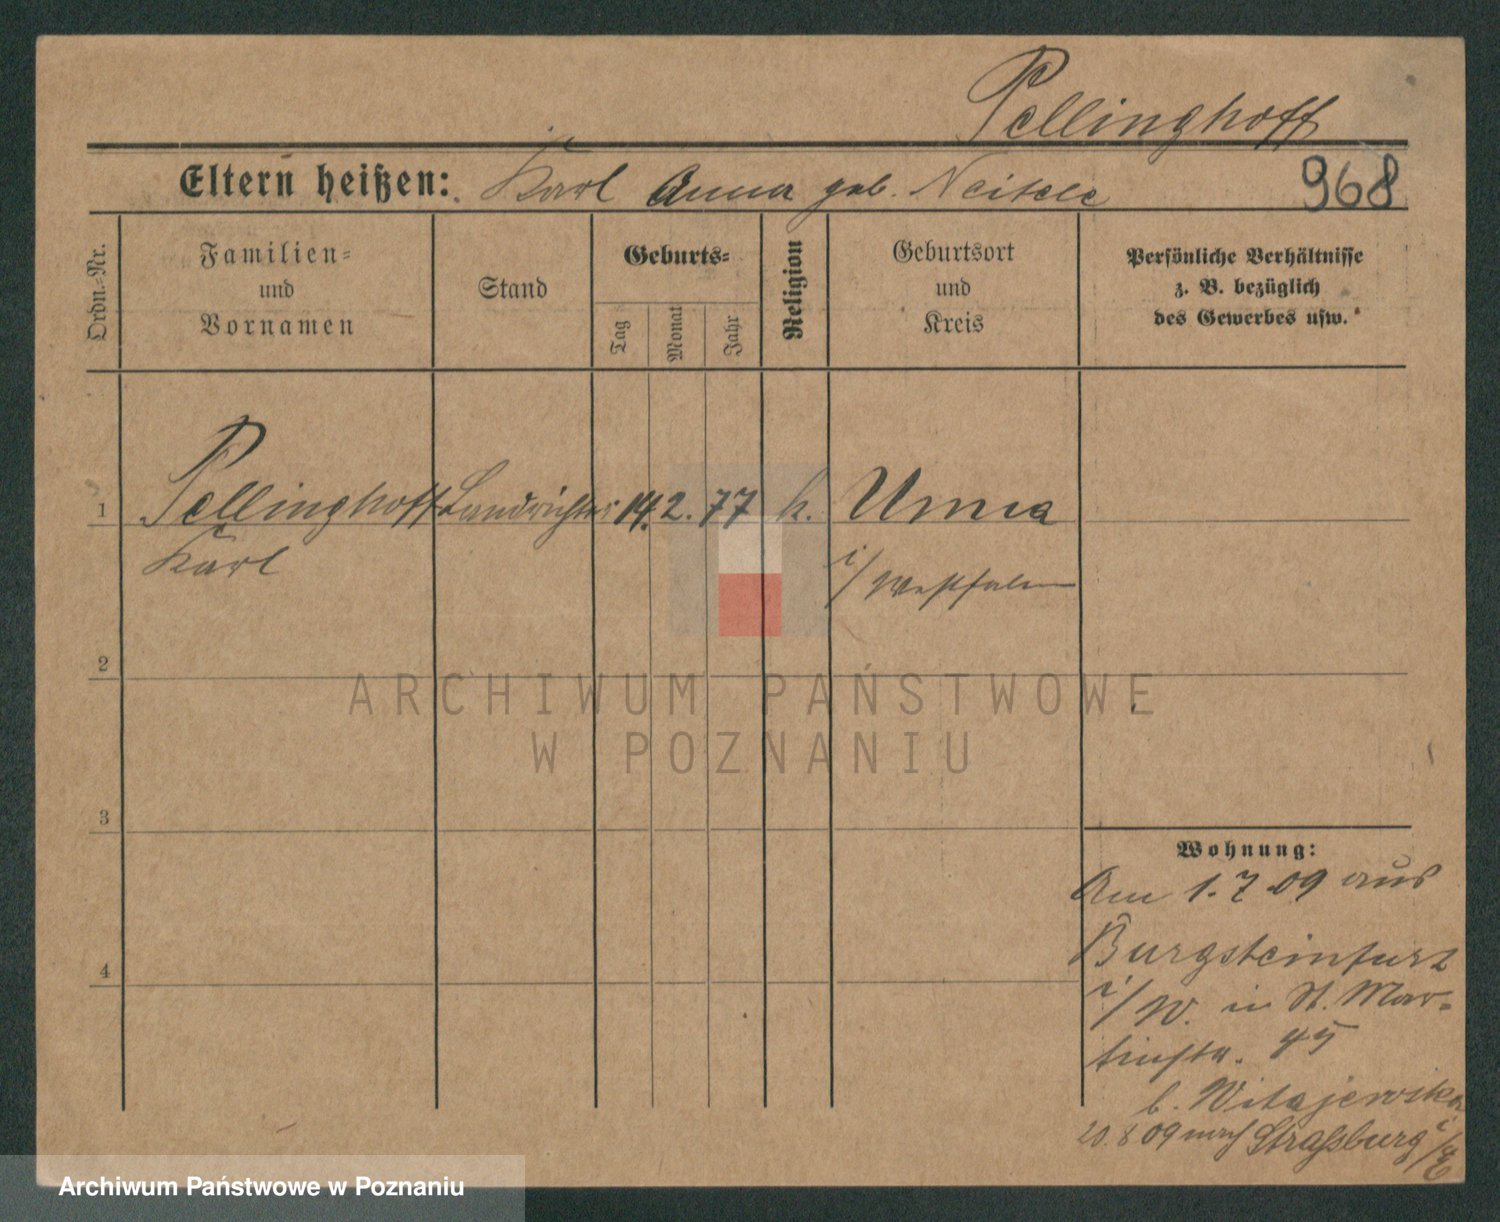 Pellinghoff
Eltern heißen: Karl Anna geb.
968
Ordn.-Nr.
Familien-
und
Vornamen
Stand
Geburts-
Tag
Monat
Jahr
Religion
Geburtsort
und
Kreis
Persönliche Verhältnisse
z. B. bezüglich
des Gewerbes usw.
1 Pellinghoff Landrichter 14. 2. 77 k. Unna
Karl i/Westfalen
2
3
4
ARCHIWUM PAŃSTWOWE
W POZNANIU
Wohnung:
Am 1.7.09 aus
Burgsteinfurt
i/W. in St. Mar-
tinstr. 45
b. Witajewska
20.8 09 nach Straßburg i/E
Archiwum Państwowe w Poznaniu